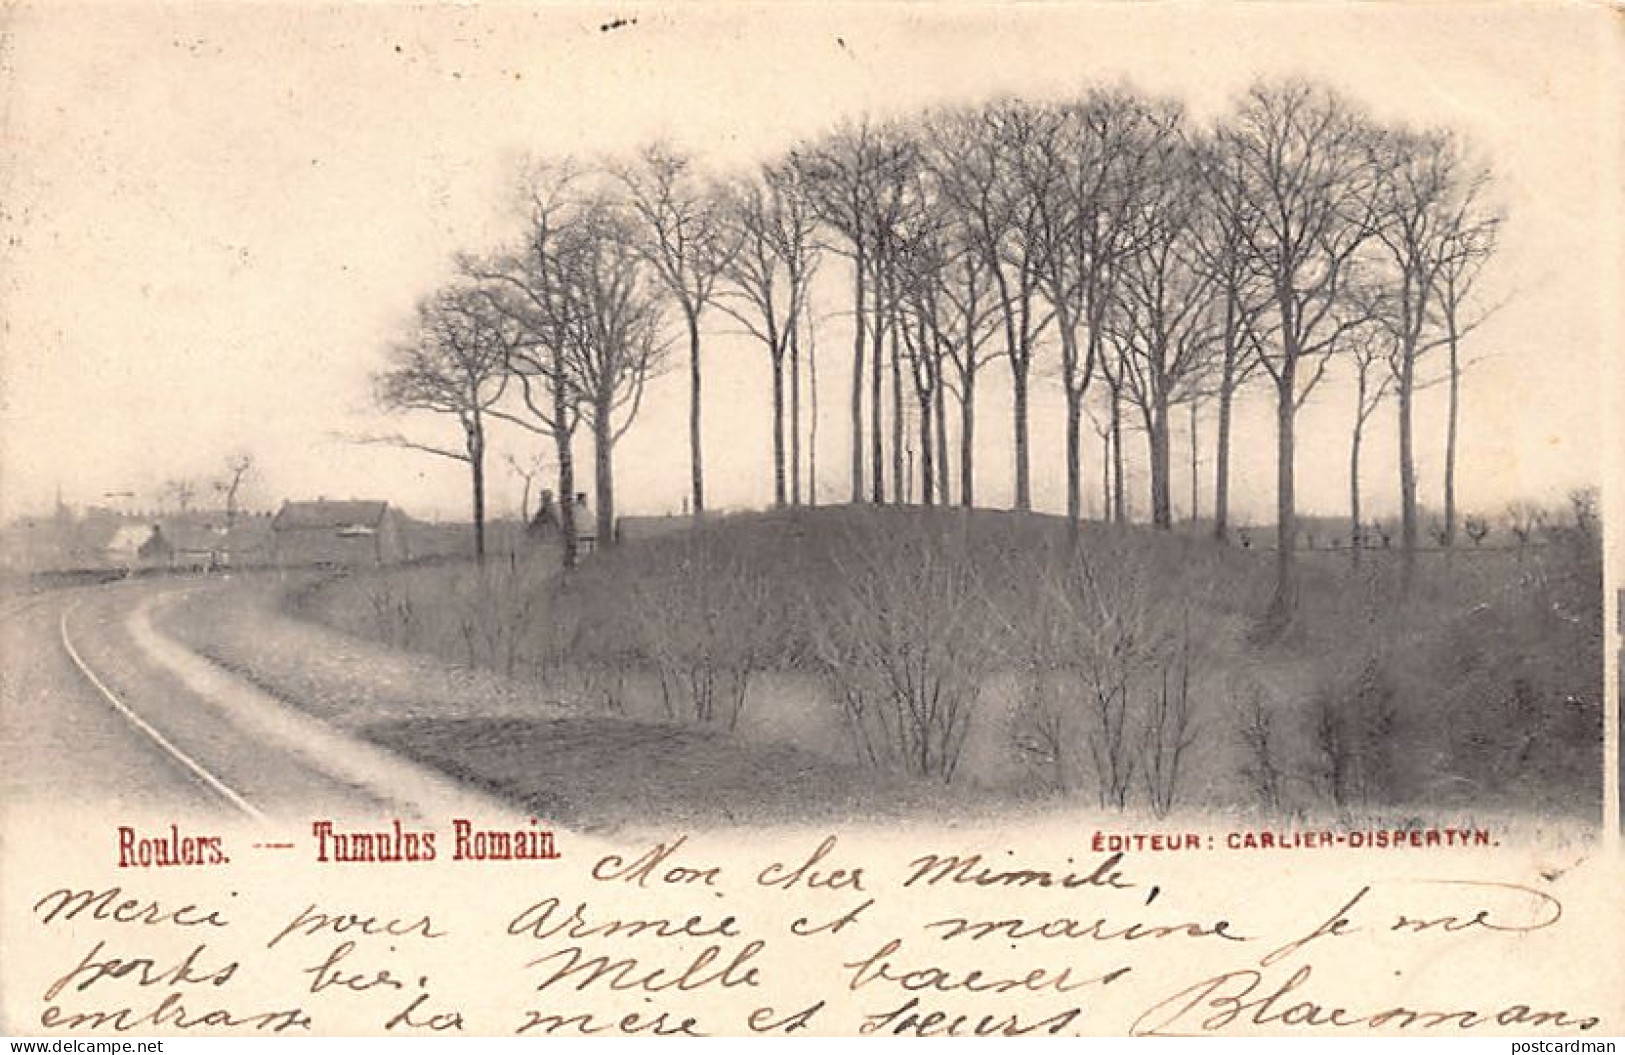 Roulers. — Tumulus Romain.
ÉDITEUR: CARLIER-DISPERTYN.
Mon cher Mimile,
Merci pour Armée et marine Je me
porks bien. Mille baisers
embrasse ta mère et soeurs. Blaismans
delcampe.net
postcardman